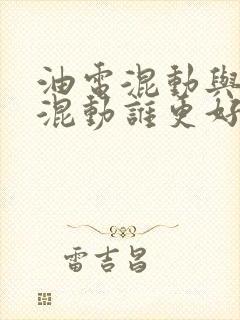 油電混動與
混動誰更好
雷吉昌